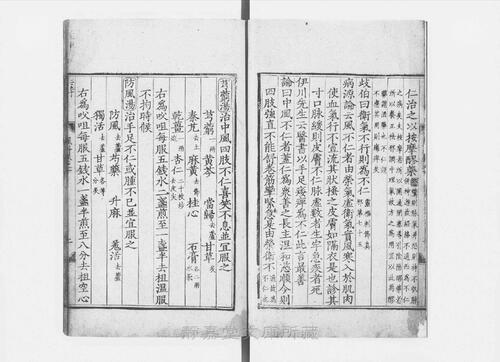 仁治之以按摩醪藥
歧伯曰衛氣不行則為不仁
病源論云風不仁者由榮氣虛衛氣實風寒入於肌肉
使血氣行不宣流其狀搔之皮膚如隔衣是也診其
寸口脉緩則皮膚不仁脉虛數者生牢急疾者死
伊川先生云醫書以手足痿痺為不仁此言最善
論曰中風不仁者蓋仁為衆善之長主溫和慈順今則
四肢強直不能舒卷筋攣緊急是由榮衛不
芎藭湯治中風四肢不仁喜笑不息並宜服之
芎藭 黃芩 當歸去蘆 甘草炙
秦艽去土 麻黃去節 桂心 石膏各一兩
乾薑 杏仁
右為㕮咀每服五錢水二盞煎至一盞半去柤溫服
不拘時候
防風湯治手足不仁或腫不已並宜服之
防風去蘆 芍藥 升麻 羌活去蘆
獨活去蘆 甘草炙
右為㕮咀每服五錢水一盞半煎至八分去柤空心
靜嘉堂文庫所藏